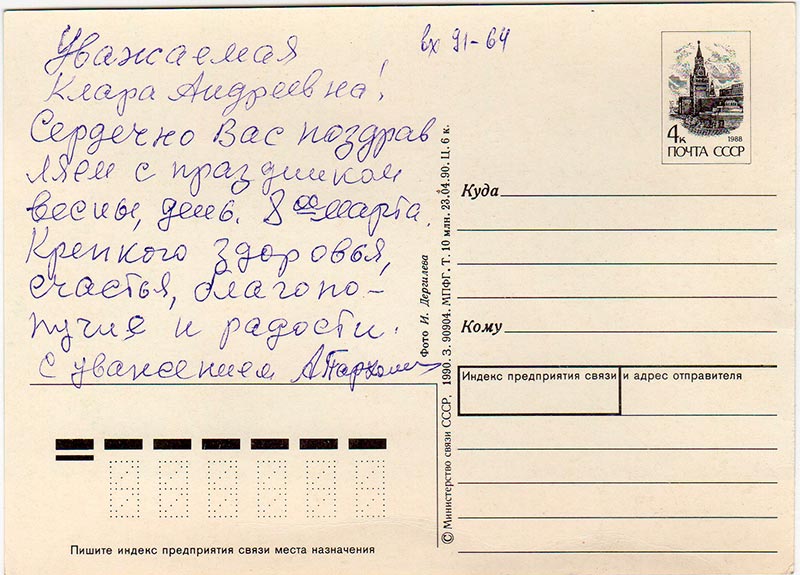 Уважаемая
Клара Андреевна!
Сердечно Вас поздрав
ляем с праздником
весны, день. 8ое марта.
Крепкого здоровья,
счастья, благопо-
лучия и радости.
С уважением
вх 91-64
4к
1988
ПОЧТА СССР
Куда
Кому
Индекс предприятия связи и адрес отправителя
Фото И. Дергилева
© Министерство связи СССР, 1990. З. 90904. МПФГ. Т. 10 млн. 23.04.90. Ц. 6 к.
Пишите индекс предприятия связи места назначения